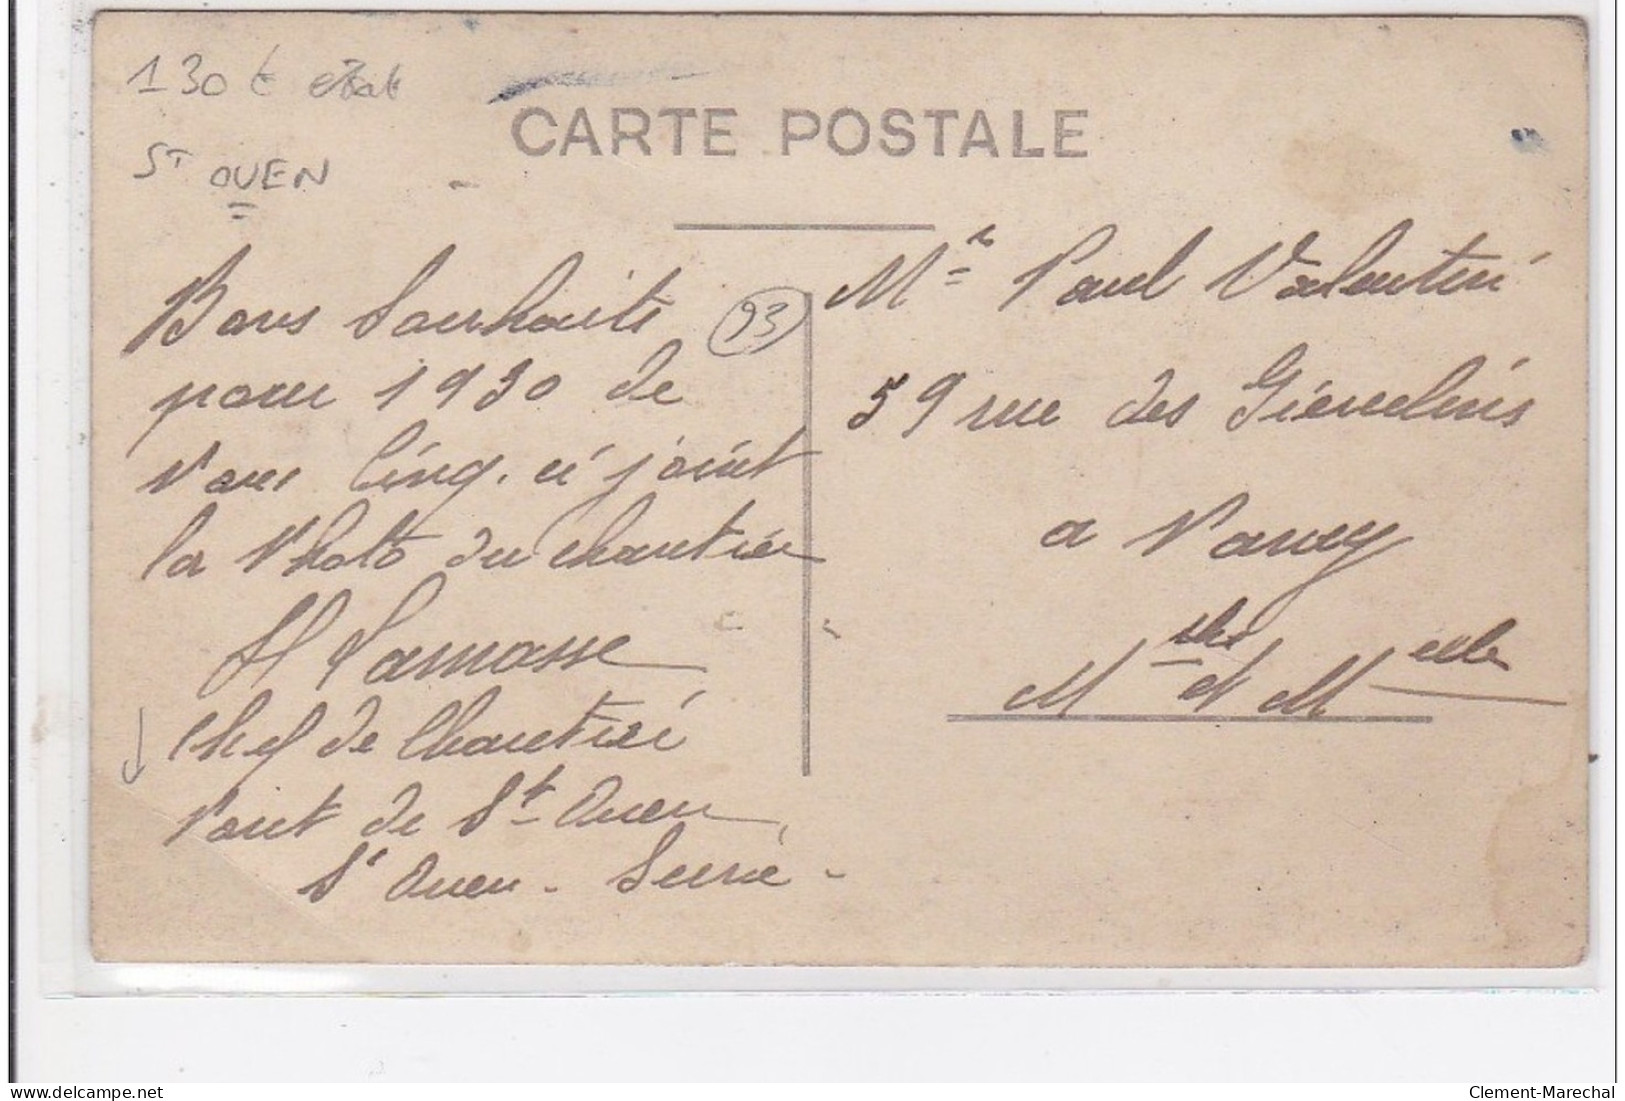 130 € état
St OUEN
CARTE POSTALE
Bons Souhaits
pour 1930 de
Vous Cinq. ci joint
la Photo du chantier
Chef de Chantier
Pont de St Ouen
St Ouen - Seine -
93
Mr Paul Valentin
59 rue des
a Nancy
M et Melle
delcampe.net
Clement-Marechal